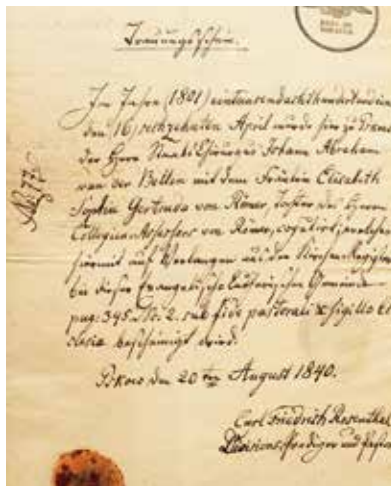 Trauungsschein.
Im Jahre (1801) eintausendachthundertundein
den (16) sechzehnten April wurde hier zu
der Herr Johann Abraham
van der Bellen mit dem Fräulein Elisabeth
Sophia von Römer, Tochter des Herrn
Collegien Assessors von Römer, copulirt, welches
hiermit auf Verlangen aus den Kirchen
bei dieser Evangelisch Lutherischen Gemeinde
pag: 345. No: 2. sub fide pastorali & sigillo
bescheinigt wird.
den 20ten August 1840.
Carl Friedrich Rosenthal
Divisionsprediger und